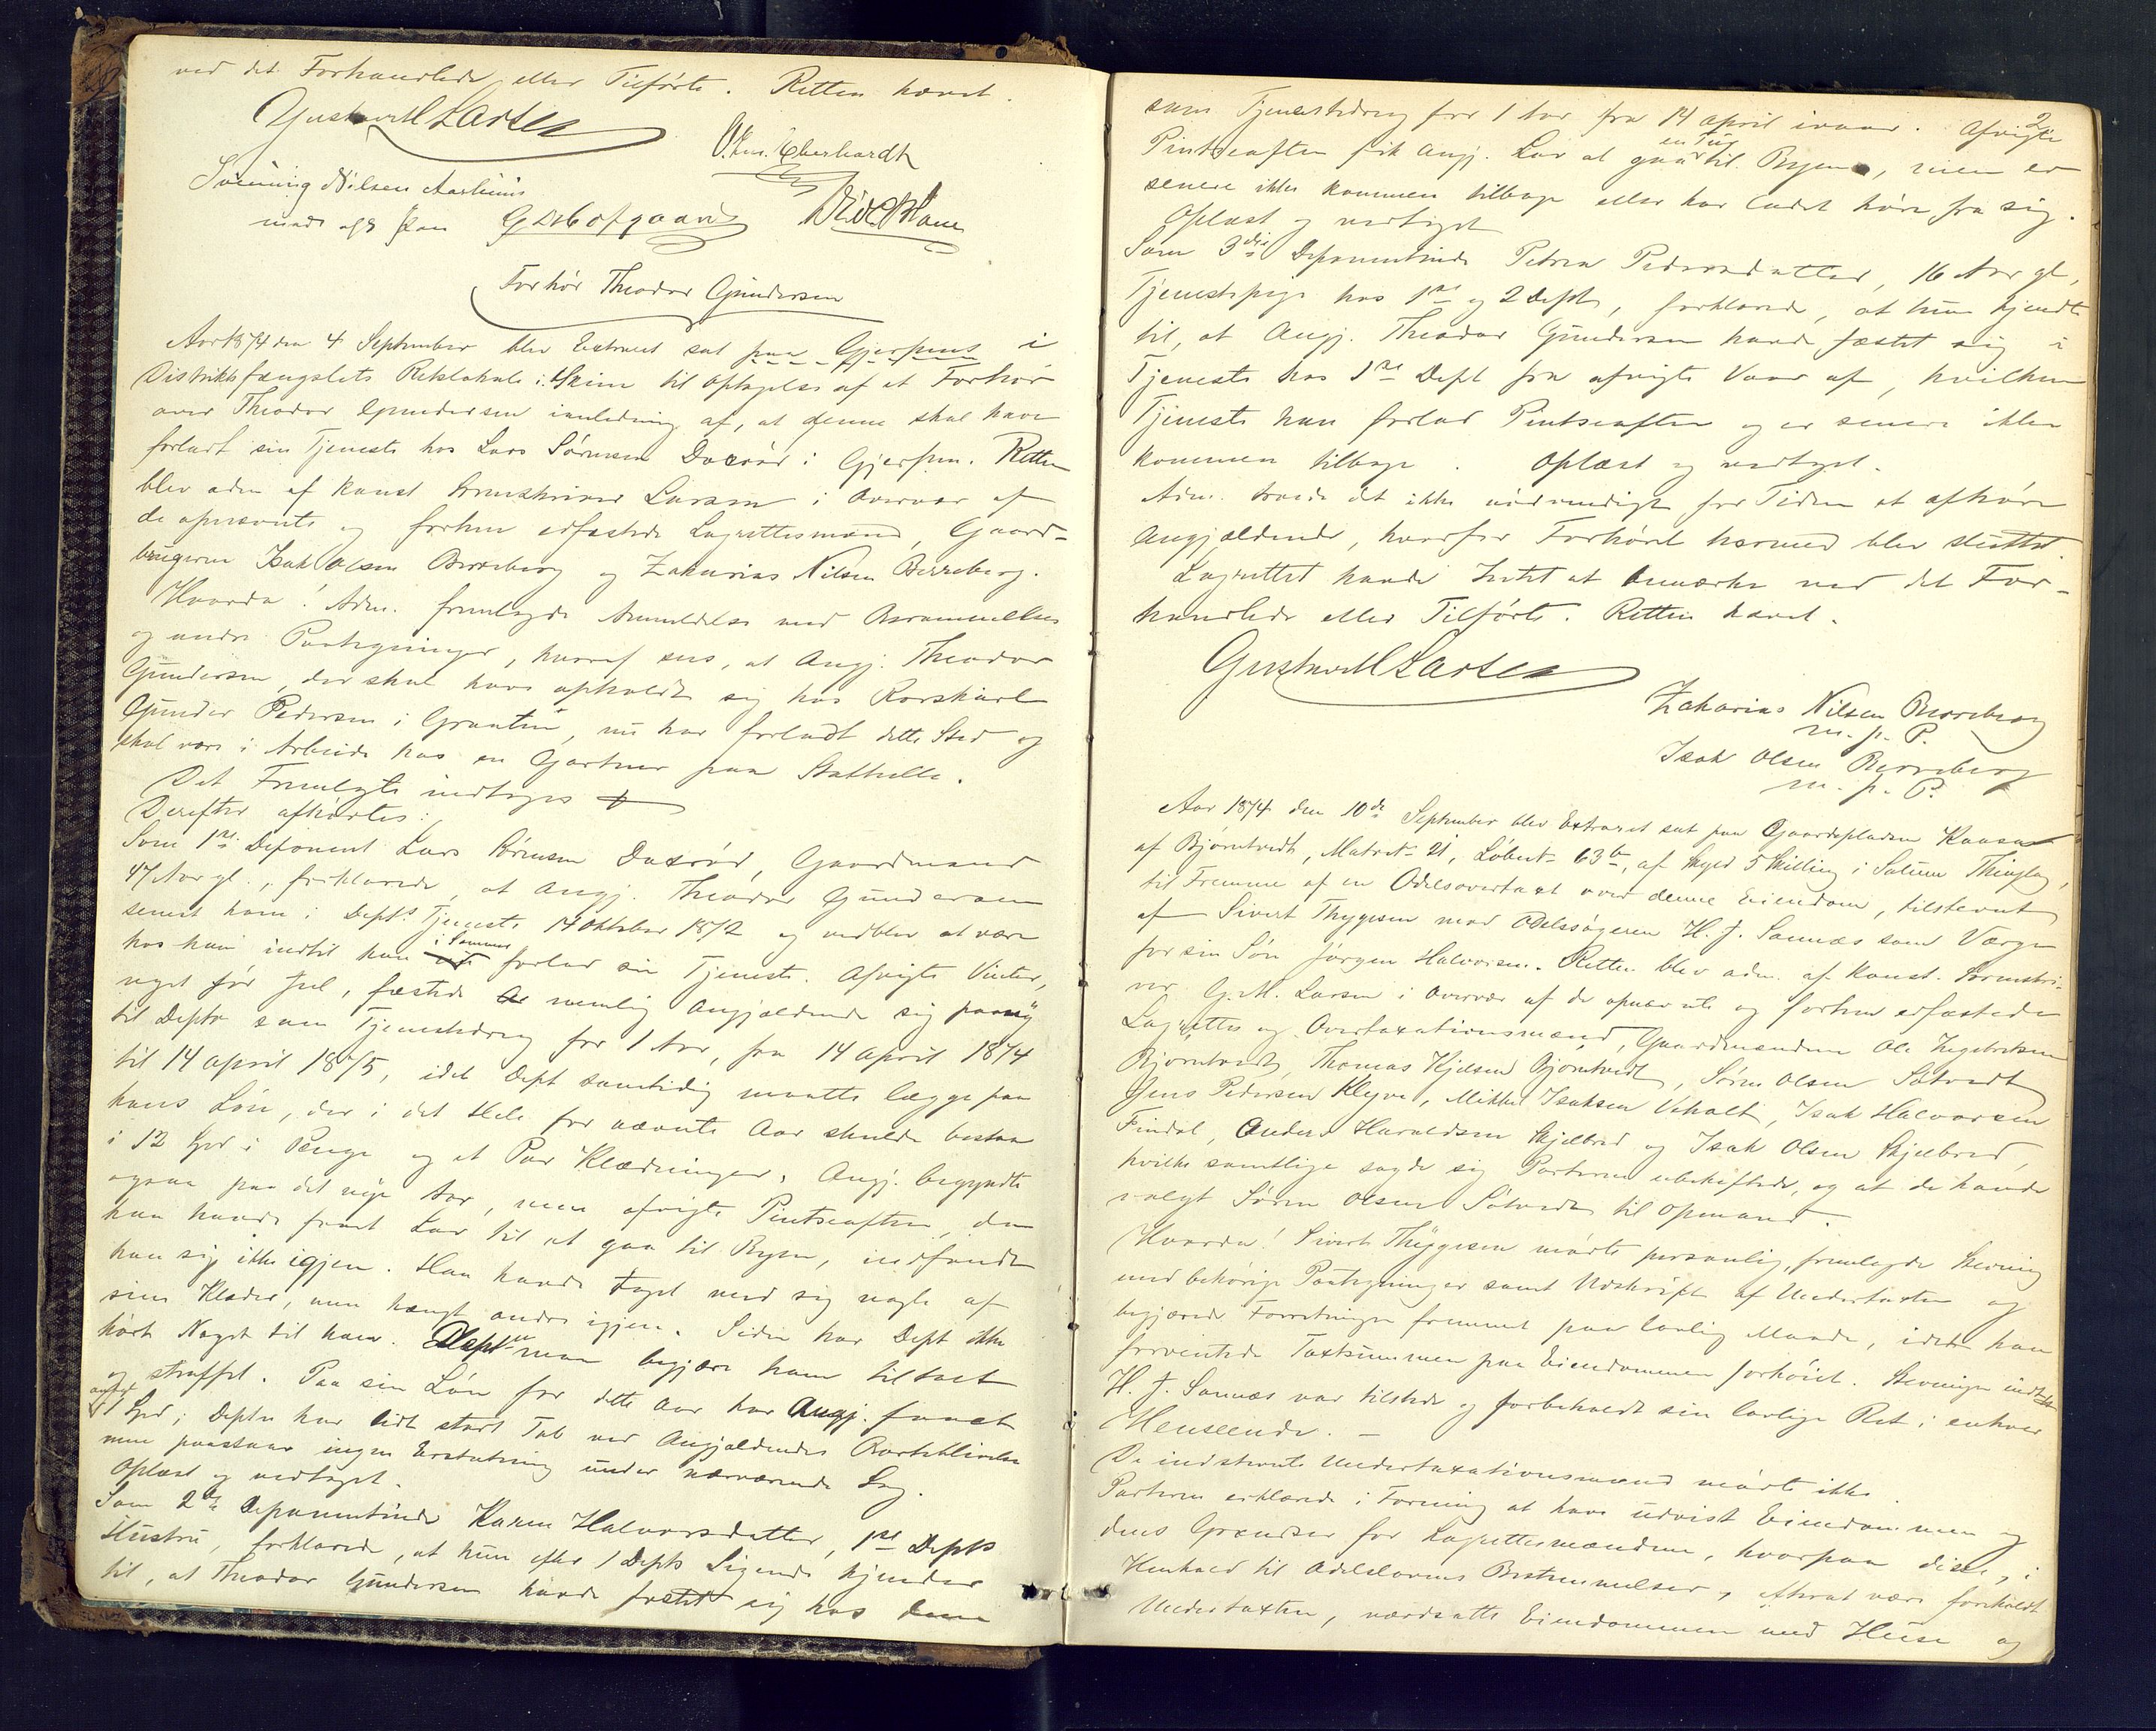 ved det Forhandlede eller Tilførte. Retten hævet.
Gustav M Larsen
O. Chr. Eberhardt
Svennung Nilsen Aarhuus
med ført Pen
Forhør Theodor Gundersen
Aar 1874 den 4 September blev Extraret sat paa Gjerpens i
Distriktsfængslets Retslokale i Skien til Optagelse af et Forhør
over Theodor Gundersen i anledning af, at denne skal have
forladt sin Tjeneste hos Lars Sørensen Daxrød i Gjerpen. Retten
blev adm. af konst. Sorenskriver Larsen i Overvær af
de opnævnte og forhen edfæstede Lagrettesmænd, Gaard-
brugerne Isak Olsen Borreberg og Zakarias Nilsen Borreberg.
Hvorda! Adm. fremlagde Anmeldelse med Berammelses
og andre Paategninger, hvoraf sees, at Angj. Theodor
Gundersen, der skal have opholdt sig hos Rorskarl
Gunder Pedersen i Graaten, nu har forladt dette Sted og
skal være i Arbeide hos en Gartner paa Stathelle.
Det Fremlagte indtages
Derefter afhørtes:
Som 1ste Deponent Lars Sørensen Daxrød, Gaardmand
47 Aar gl., forklarede, at Angj. Theodor Gundersen
senest kom i Depts Tjeneste 14 Oktober 1872 og vedblev at være
hos ham indtil han i Sommer forlod sin Tjeneste. Afvigte Vinter,
noget før Jul, fæstede nemlig Angjældende sig paany
til Deptn som Tjenestedreng for 1 Aar, fra 14 April 1874
til 14 April 1875, idet Dept samtidig maatte lægge paa
hans Løn, der i det Hele for nævnte Aar skulde bestaa
i 12 Spd i Penge og et Par Klædninger. Angj. begyndte
ogsaa paa det nye Aar, men afvigte Pintseaften, da
han havde faaet Lov til at gaa til Byen, indfandt
han sig ikke igjen. Han havde taget med sig nogle af
sine Klæder, men hængt andre igjen. Siden har Dept ikke
hørt Noget til ham. Deptn maa begjære ham tiltalt
og straffet. Paa sin Løn for dette Aar har Angj. faaet
1 Spd; Deptn har lidt stort Tab ved Angjældendes Bortebliven
men paastaar ingen Erstatning under nærværende Sag.
Oplæst og vedtaget.
Som 2den Deponentinde Karen Halvorsdatter, 1ste Depts
Hustru, forklarede, at hun efter 1 Depts Sigende kjender
til, at Theodor Gundersen havde fæstet sig hos denne
2
som Tjenestedreng for 1 Aar fra 14 April ivaar. Afvigte
Pintseaften fik Angj. Lov at gaa en Tur til Byen, men er
senere ikke kommen tilbage eller har ladet høre fra sig.
Oplæst og vedtaget
Som 3die Deponentinde Petrea Pedersdatter, 16 Aar gl,
Tjenestepige hos 1ste og 2 Dept, forklarede, at hun kjendte
til, at Angj. Theodor Gundersen havde fæstet sig i
Tjeneste hos 1ste Dept fra afvigte Vaar af, hvilken
Tjeneste han forlod Pintseaften og er senere ikke
kommen tilbage. Oplæst og vedtaget.
Adm. troede det ikke nødvendigt for Tiden at afhøre
Angjældende, hvorfor Forhøret hermed blev sluttet.
Lagrettet havde Intet at bemærke ved det For-
handlede eller Tilførte. Retten hævet.
Gustav M Larsen
Zakarias Nilsen Borreberg
m. p. P.
Isak Olsen Borreberg
m. p. P.
Aar 1874 den 10de September blev Extraret sat paa Gaardspladsen Kaasa
af Bjørntvedt, Matr.№ 21, Løben№ 63b, af Skyld 5 Skilling i Solum Thinglag,
til Fremme af en Odelsovertaxt over denne Eiendom, tilstevnt
af Sivert Thygesen mod Odelssøgeren H. J. Sannæs som Værge
for sin Søn Jørgen Halvorsen. Retten blev adm. af konst. Sorenskri-
ver G. M. Larsen i Overvær af de opnævnte og forhen edfæstede
Lagrettes og Overtaxationsmænd, Gaardmændene Ole Ingebretsen
Bjørntvedt, Thomas Kjelsen Bjørntvedt, Søren Olsen Søtvedt
Jens Pedersen Klyve, Mikkel Isaksen Veholt, Isak Halvorsen
Findal, Anders Haraldsen Skjelbred og Isak Olsen Skjelbred,
hvilke samtlige sagde sig Parterne ubeheftede, og at de havde
valgt Søren Olsen Søtvedt til Opmand.
Hvorda! Sivert Thygesen mødte personlig, fremlagde Stevning
med behørige Paategninger samt Udskrift af Undertaxten og
begjærede Forretningen fremmet paa lovlig Maade, idet han
forventede Taxtsummen paa Eiendommen forhøiet. Stevningen indtages
H. J. Sannæs var tilstede og forbeholdt sin lovlige Ret i enhver
Henseende. -
De indstevnte Undertaxationsmænd mødte ikke.
Parterne erklærede i Forening at have udvist Eiendommen og
dens Grændser for Lagrettesmændene, hvorpaa disse, i
Henhold til Odelslovens Bestemmelser, efterat være foreholdt
Undertaxten, værdsatte Eiendommen med Huse og